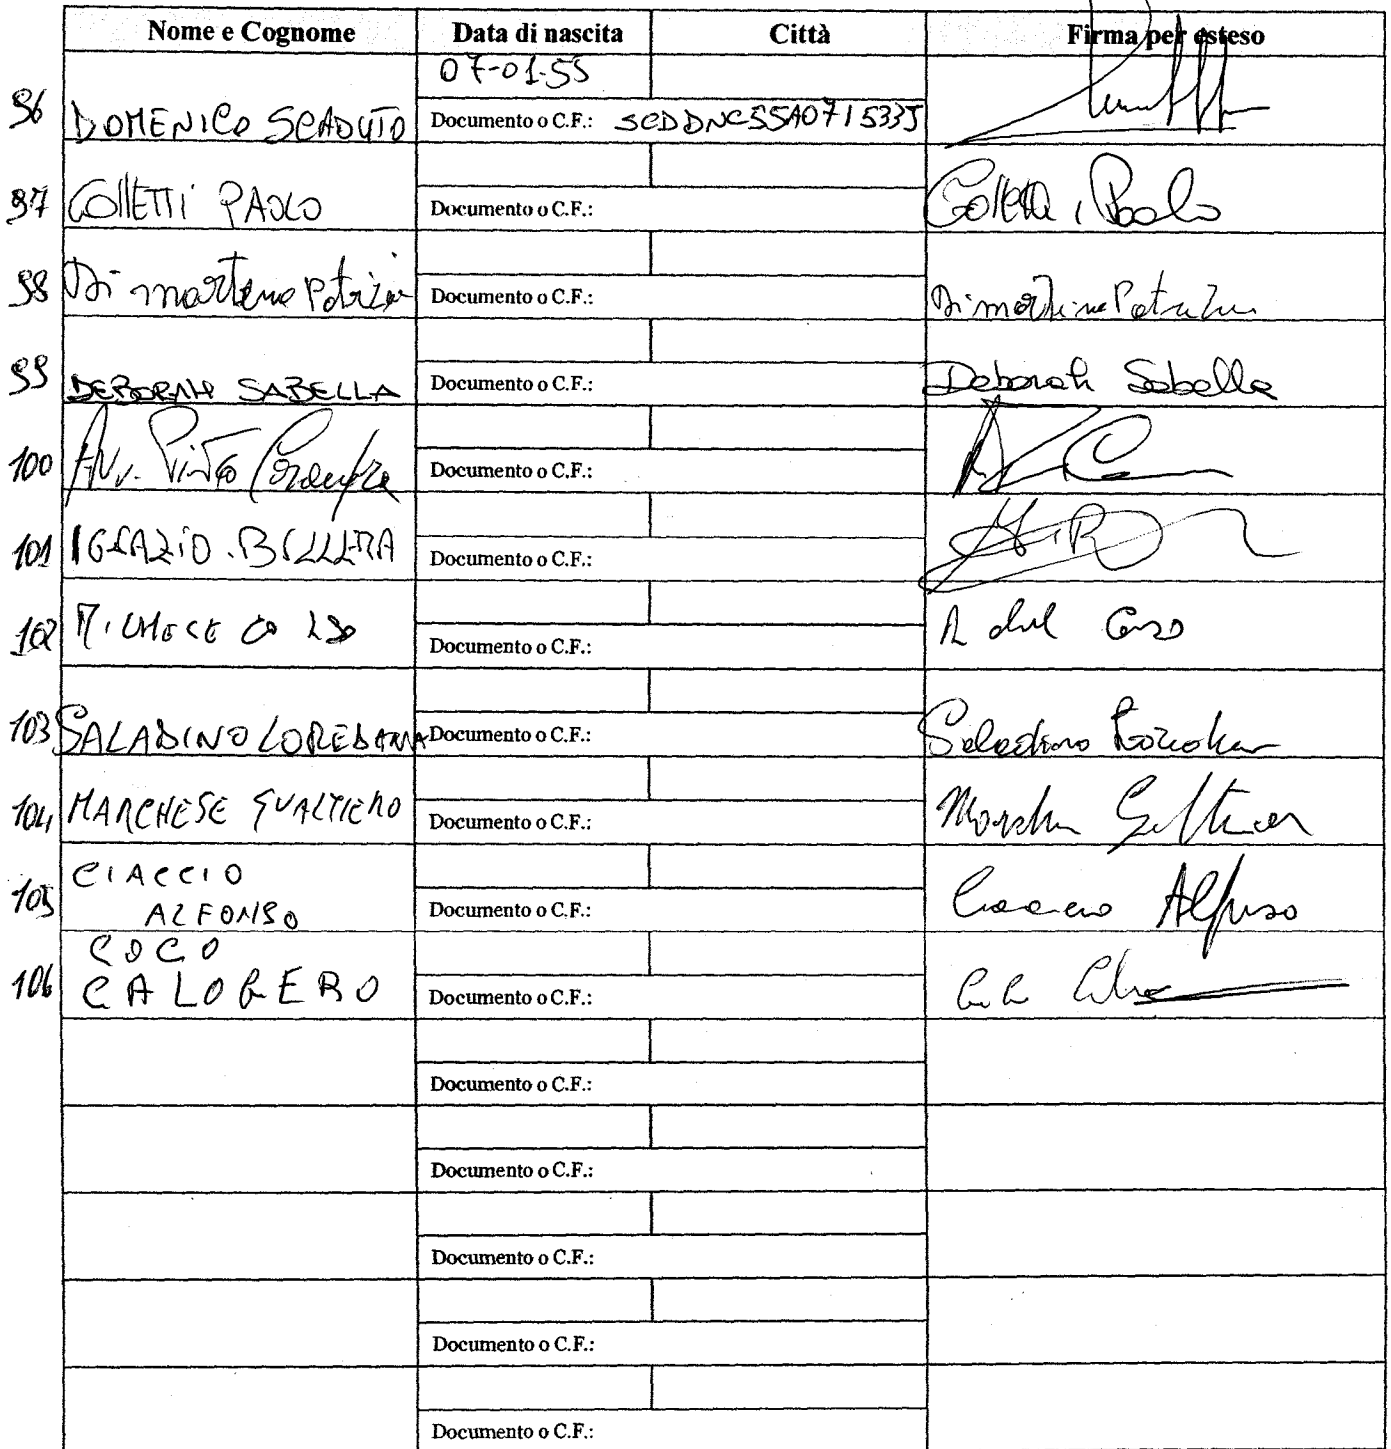 Nome e Cognome Data di nascita Città Firma per esteso
07-01-55
96 DOMENICO SCADUTO Documento o C.F.: SCDDNC55A07I533J
97 COllETTi PAOLO Documento o C.F.: Colletti Paolo
98 Di martino Patrizia Documento o C.F.: Di martino Patrizia
99 DEBORAH SABELLA Documento o C.F.: Deborah Sabella
100 Avv. Pinto Documento o C.F.:
101 IGNAZIO BELLERA Documento o C.F.:
102 MICHELE Documento o C.F.:
103 SALADINO LOREDANA Documento o C.F.: Saladino Loredana
104 MARCHESE GUALTIERO Documento o C.F.:
CIACCIO
105 ALFONSO Documento o C.F.: Ciaccio Alfonso
COCO
106 CALOGERO Documento o C.F.:
Documento o C.F.:
Documento o C.F.:
Documento o C.F.:
Documento o C.F.:
Documento o C.F.: